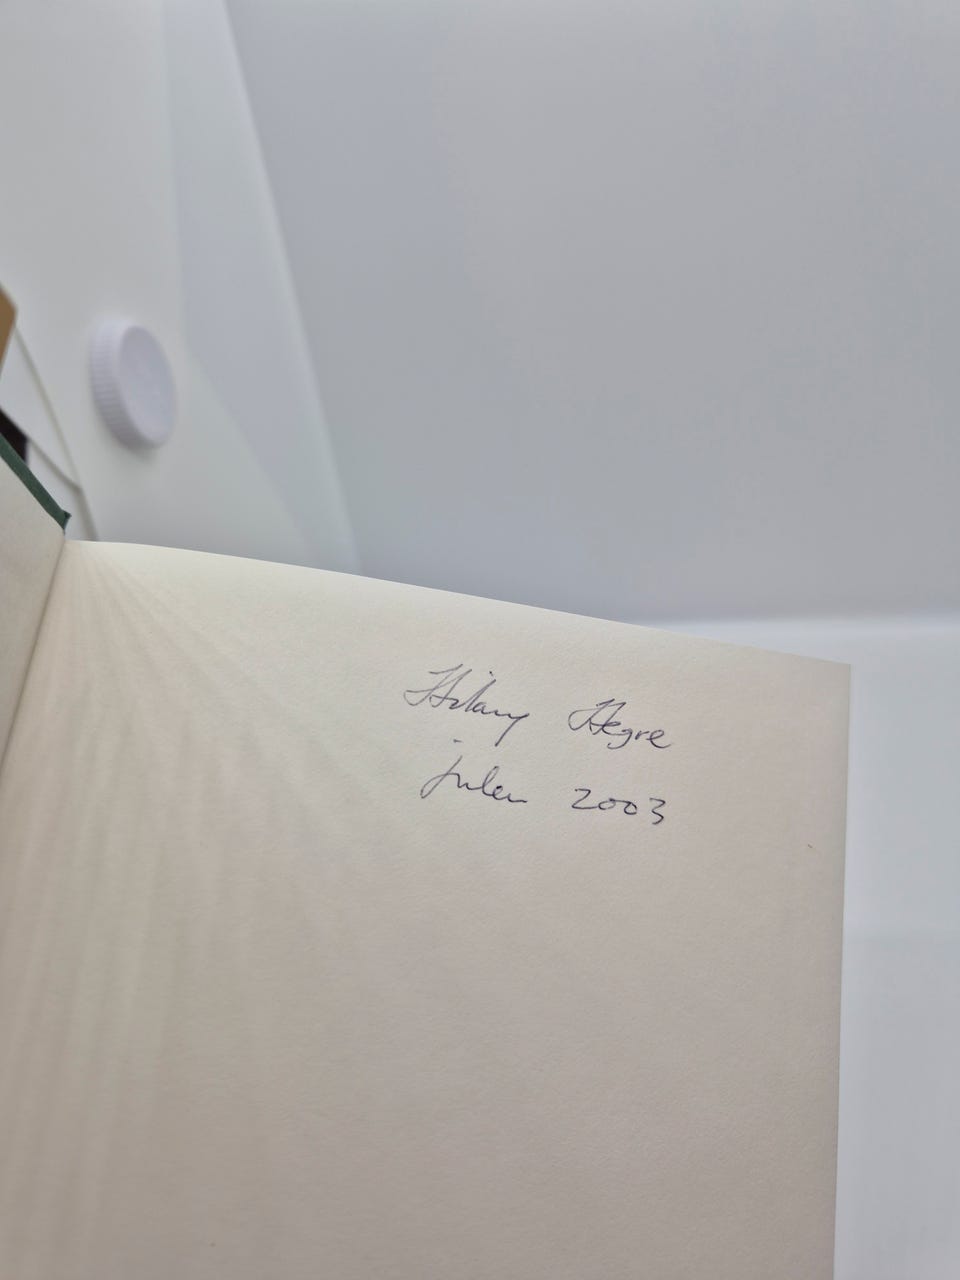 Hilary Hegre
julen 2003